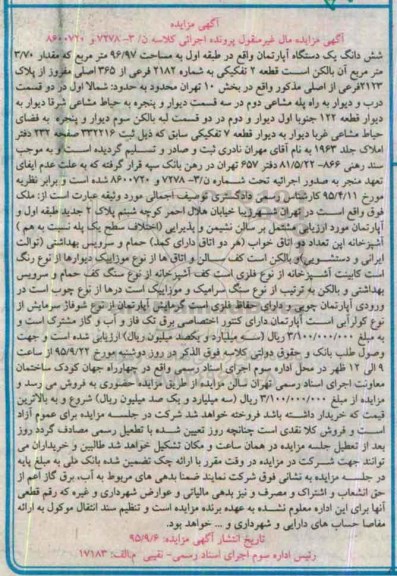 آگهی مزایده
آگهی مزایده مال غیرمنقول پرونده اجرائی کلاسه ن/ ۳- ۷۲۷۸ و ۸۶۰۰۷۲۰
شش دانگ یک دستگاه آپارتمان واقع در طبقه اول به مساحت ۹۶/۹۷ متر مربع که مقدار ۳/۷۰
متر مربع آن بالکن است قطعه ۲ تفکیکی به شماره ۲۱۸۲ فرعی از ۳۶۵ اصلی مفروز از پلاک
۲۱۲۳ فرعی از اصلی مذکور واقع در بخش ۱۰ تهران محدود به حدود: شمالا اول در دو قسمت
درب و دیوار به راه پله مشاعی دوم در سه قسمت دیوار و پنجره به حیاط مشاعی شرقا دیوار به
دیوار قطعه ۱۲۲ جنوبا اول دیوار و دوم در دو قسمت لبه بالکن سوم دیوار و پنجره به فضای
حیاط مشاعی غربا دیوار به دیوار قطعه ۷ تفکیکی سابق که ذیل ثبت ۳۳۲۲۱۶ صفحه ۲۳۲ دفتر
املاک جلد ۱۹۶۳ به نام آقای مهران نادری ثبت و صادر و تسلیم گردیده است و به موجب
سند رهنی ۸۶۶- ۸۱/۵/۲۲ دفتر ۶۵۷ تهران در رهن بانک سپه قرار گرفته که به علت عدم ایفای
تعهد منجر به صدور اجرائیه تحت شماره ن/۳- ۷۲۷۸ و ۸۶۰۰۷۲۰ شده است و برابر نظریه
مورخ ۹۵/۴/۱۱ کارشناس رسمی دادگستری توصیف اجمالی مورد وثیقه عبارت است از: ملک
فوق واقع است در تهران شهرزیبا خیابان هلال احمر کوچه شبنم پلاک ۲ جدید طبقه اول و
آپارتمان مورد ارزیابی مشتمل بر سالن نشیمن و پذیرایی (اختلاف سطح یک پله نسبت به هم )
آشپزخانه اپن تعداد دو اتاق خواب (هر دو اتاق دارای کمد) حمام و سرویس بهداشتی (توالت
ایرانی و دستشویی) و بالکن است کف سالن و اتاق ها از نوع موزاییک دیوارها از نوع رنگ
است کابینت آشپزخانه از نوع فلزی است کف آشپزخانه از نوع سنگ کف حمام و سرویس
بهداشتی و بالکن به ترتیب از نوع سنگ سرامیک و موزاییک است درها از نوع چوب است در
ورودی آپارتمان چوبی و دارای حفاظ فلزی است گرمایش آپارتمان از نوع شوفاژ سرمایش از
نوع کولرآبی است آپارتمان دارای کنتور اختصاصی برق تک فاز و آب و گاز مشترک است و
به مبلغ ۳/۱۰۰/۰۰۰/۰۰۰ ریال (سه میلیارد و یکصد میلیون ریال) ارزیابی شده است و جهت
وصول طلب بانک و حقوق دولتی کلاسه فوق الذکر در روز دوشنبه مورخ ۹۵/۹/۲۲ از ساعت
۹ الی ۱۲ ظهر در محل اداره سوم اجرای اسناد رسمی واقع در چهارراه جهان کودک ساختمان
معاونت اجرای اسناد رسمی تهران سالن مزایده از طریق مزایده حضوری به فروش می رسد و
مزایده از مبلغ ۳/۱۰۰/۰۰۰/۰۰۰ ریال (سه میلیارد و یک صد میلیون ریال) شروع و به بالاترین
قیمت که خریدار داشته باشد فروخته خواهد شد شرکت در جلسه مزایده برای عموم آزاد
است و فروش کلا نقدی است چنانچه روز تعیین شده با تعطیل رسمی مصادف گردد روز
بعد از تعطیل جلسه مزایده در همان ساعت و مکان تشکیل خواهد شد طالبین و خریداران می
توانند جهت شرکت در مزایده در وقت مقرر با ارائه چک تضمین شده بانک ملی به مبلغ پایه
در جلسه مزایده به نشانی فوق شرکت نمایند ضمنا بدهی های مربوط به آب، برق گاز اعم از
حق انشعاب و اشتراک و مصرف و نیز بدهی مالیاتی و عوارض شهرداری و غیره که رقم قطعی
آنها برای این اداره معلوم نشده به عهده برنده مزایده است و تنظیم سند انتقال موکول به ارائه
مفاصا حساب های دارایی و شهرداری و ... خواهد بود.
تاریخ انتشار آگهی مزایده: ۹۵/۹/۶
رئیس اداره سوم اجرای اسناد رسمی- نقیبی م.الف: ۱۷۱۸۳